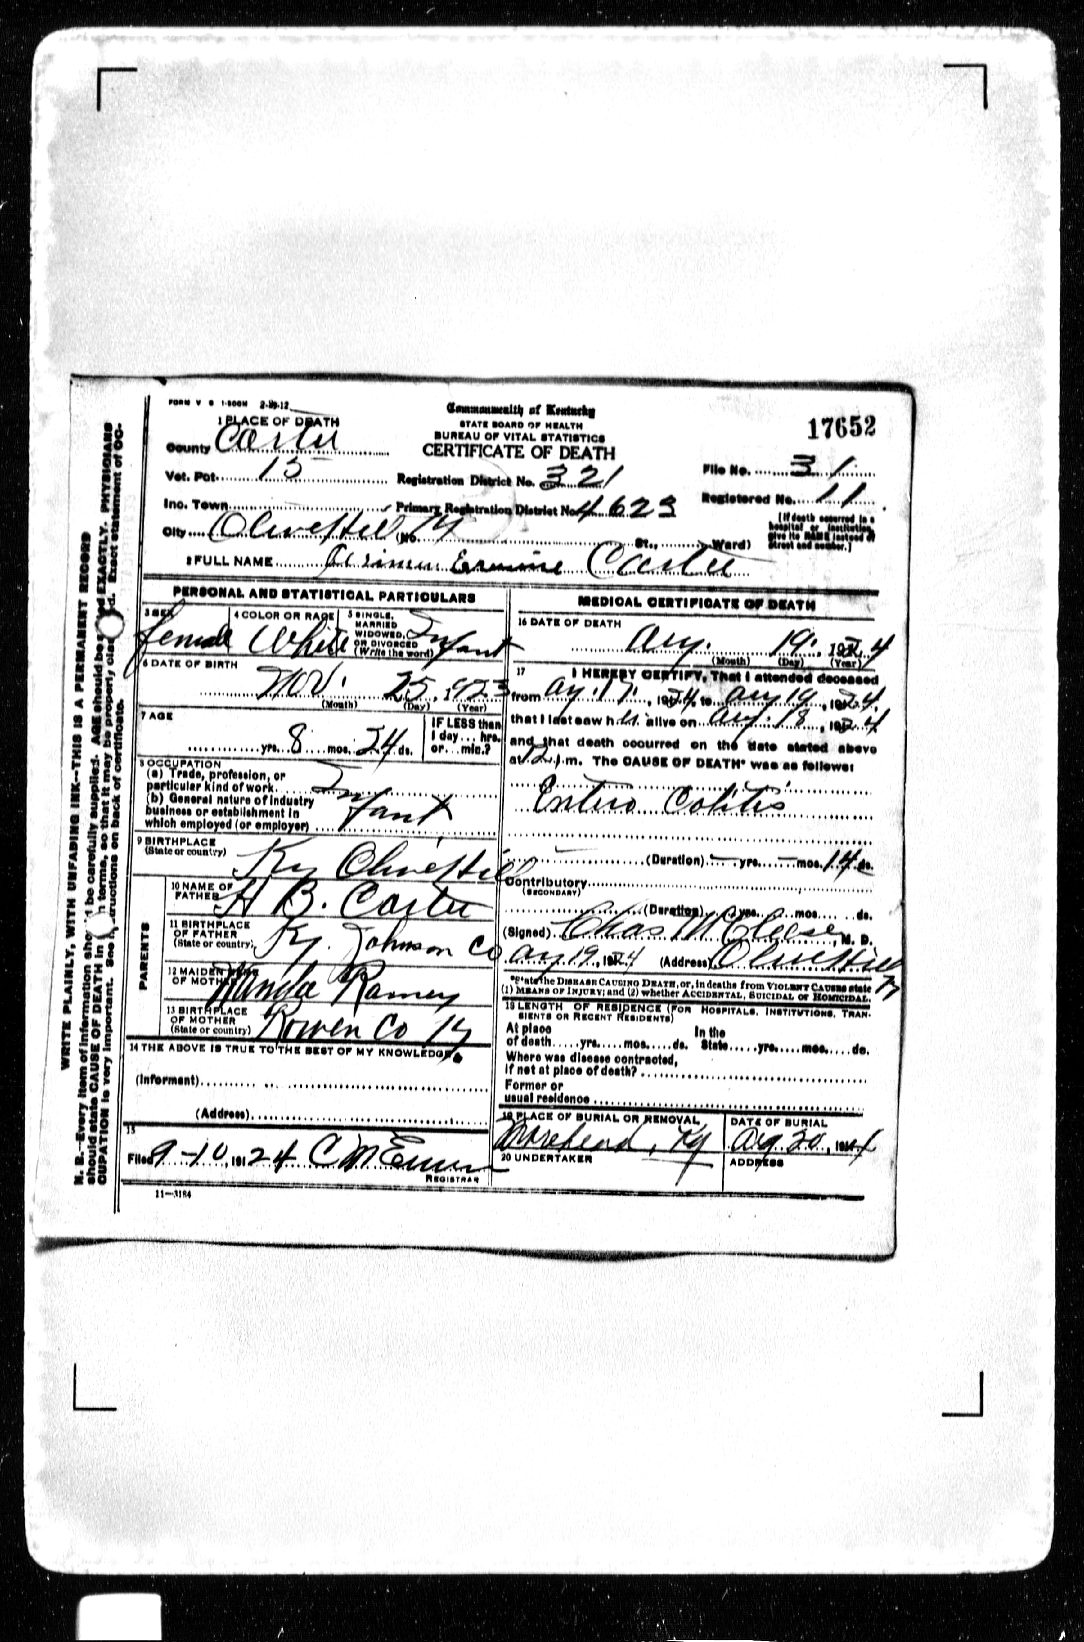 FORM V S 1-500M 2-28-12
Commonwealth of Kentucky
STATE BOARD OF HEALTH
BUREAU OF VITAL STATISTICS
CERTIFICATE OF DEATH
17652
1 PLACE OF DEATH
County Carter
Vot. Pct. 15
Registration District No. 321
File No. 31
Inc. Town
Primary Registration District No. 4623
Registered No. 11
City Olive Hill Ky (No. St., Ward)
[If death occurred in a hospital or institution, give its NAME instead of street and number.]
2 FULL NAME Ermine Carter
PERSONAL AND STATISTICAL PARTICULARS
3 SEX female
4 COLOR OR RACE White
5 SINGLE, MARRIED WIDOWED, OR DIVORCED (Write the word) Infant
6 DATE OF BIRTH
Nov. 25, 1923
(Month) (Day) (Year)
7 AGE
yrs. 8 mos. 24 ds.
IF LESS than 1 day... hrs. or... min.?
8 OCCUPATION
(a) Trade, profession, or particular kind of work Infant
(b) General nature of industry business or establishment in which employed (or employer)
9 BIRTHPLACE
(State or country) Ky Olive Hill
PARENTS
10 NAME OF FATHER H B. Carter
11 BIRTHPLACE OF FATHER (State or country) Ky. Johnson Co
12 MAIDEN NAME OF MOTHER Ramey
13 BIRTHPLACE OF MOTHER (State or country) Rowen Co Ky
14 THE ABOVE IS TRUE TO THE BEST OF MY KNOWLEDGE
(Informant)
(Address)
15
Filed 9-10, 1924
REGISTRAR
11-3184
MEDICAL CERTIFICATE OF DEATH
16 DATE OF DEATH
Aug. 19, 1924
(Month) (Day) (Year)
17 I HEREBY CERTIFY, That I attended deceased
from Aug. 17, 1924, to Aug 19, 1924,
that I last saw her alive on Aug. 18, 1924
and that death occurred on the date stated above
at 12 m. The CAUSE OF DEATH* was as follows:
Entero Colitis
(Duration) — yrs. — mos. 14 ds.
Contributory
(SECONDARY)
(Duration) yrs. mos. ds.
(Signed) Chas McCleese, M. D.
Aug 19, 1924 (Address) Olive Hill Ky
*State the DISEASE CAUSING DEATH, or, in deaths from VIOLENT CAUSES state
(1) MEANS OF INJURY; and (2) whether ACCIDENTAL, SUICIDAL OR HOMICIDAL.
18 LENGTH OF RESIDENCE (FOR HOSPITALS, INSTITUTIONS, TRANSIENTS OR RECENT RESIDENTS)
At place of death yrs. mos. ds. In the State yrs. mos. ds.
Where was disease contracted,
if not at place of death?
Former or
usual residence
19 PLACE OF BURIAL OR REMOVAL
Morehead, Ky
DATE OF BURIAL
Aug 20, 1924
20 UNDERTAKER
ADDRESS
WRITE PLAINLY, WITH UNFADING INK--THIS IS A PERMANENT RECORD
N. B.-Every item of information should be carefully supplied. AGE should be EXACTLY. PHYSICIANS
should state CAUSE OF DEATH in terms, so that it may be properly Exact statement of OC-
CUPATION is very important. See instructions on back of certificate.